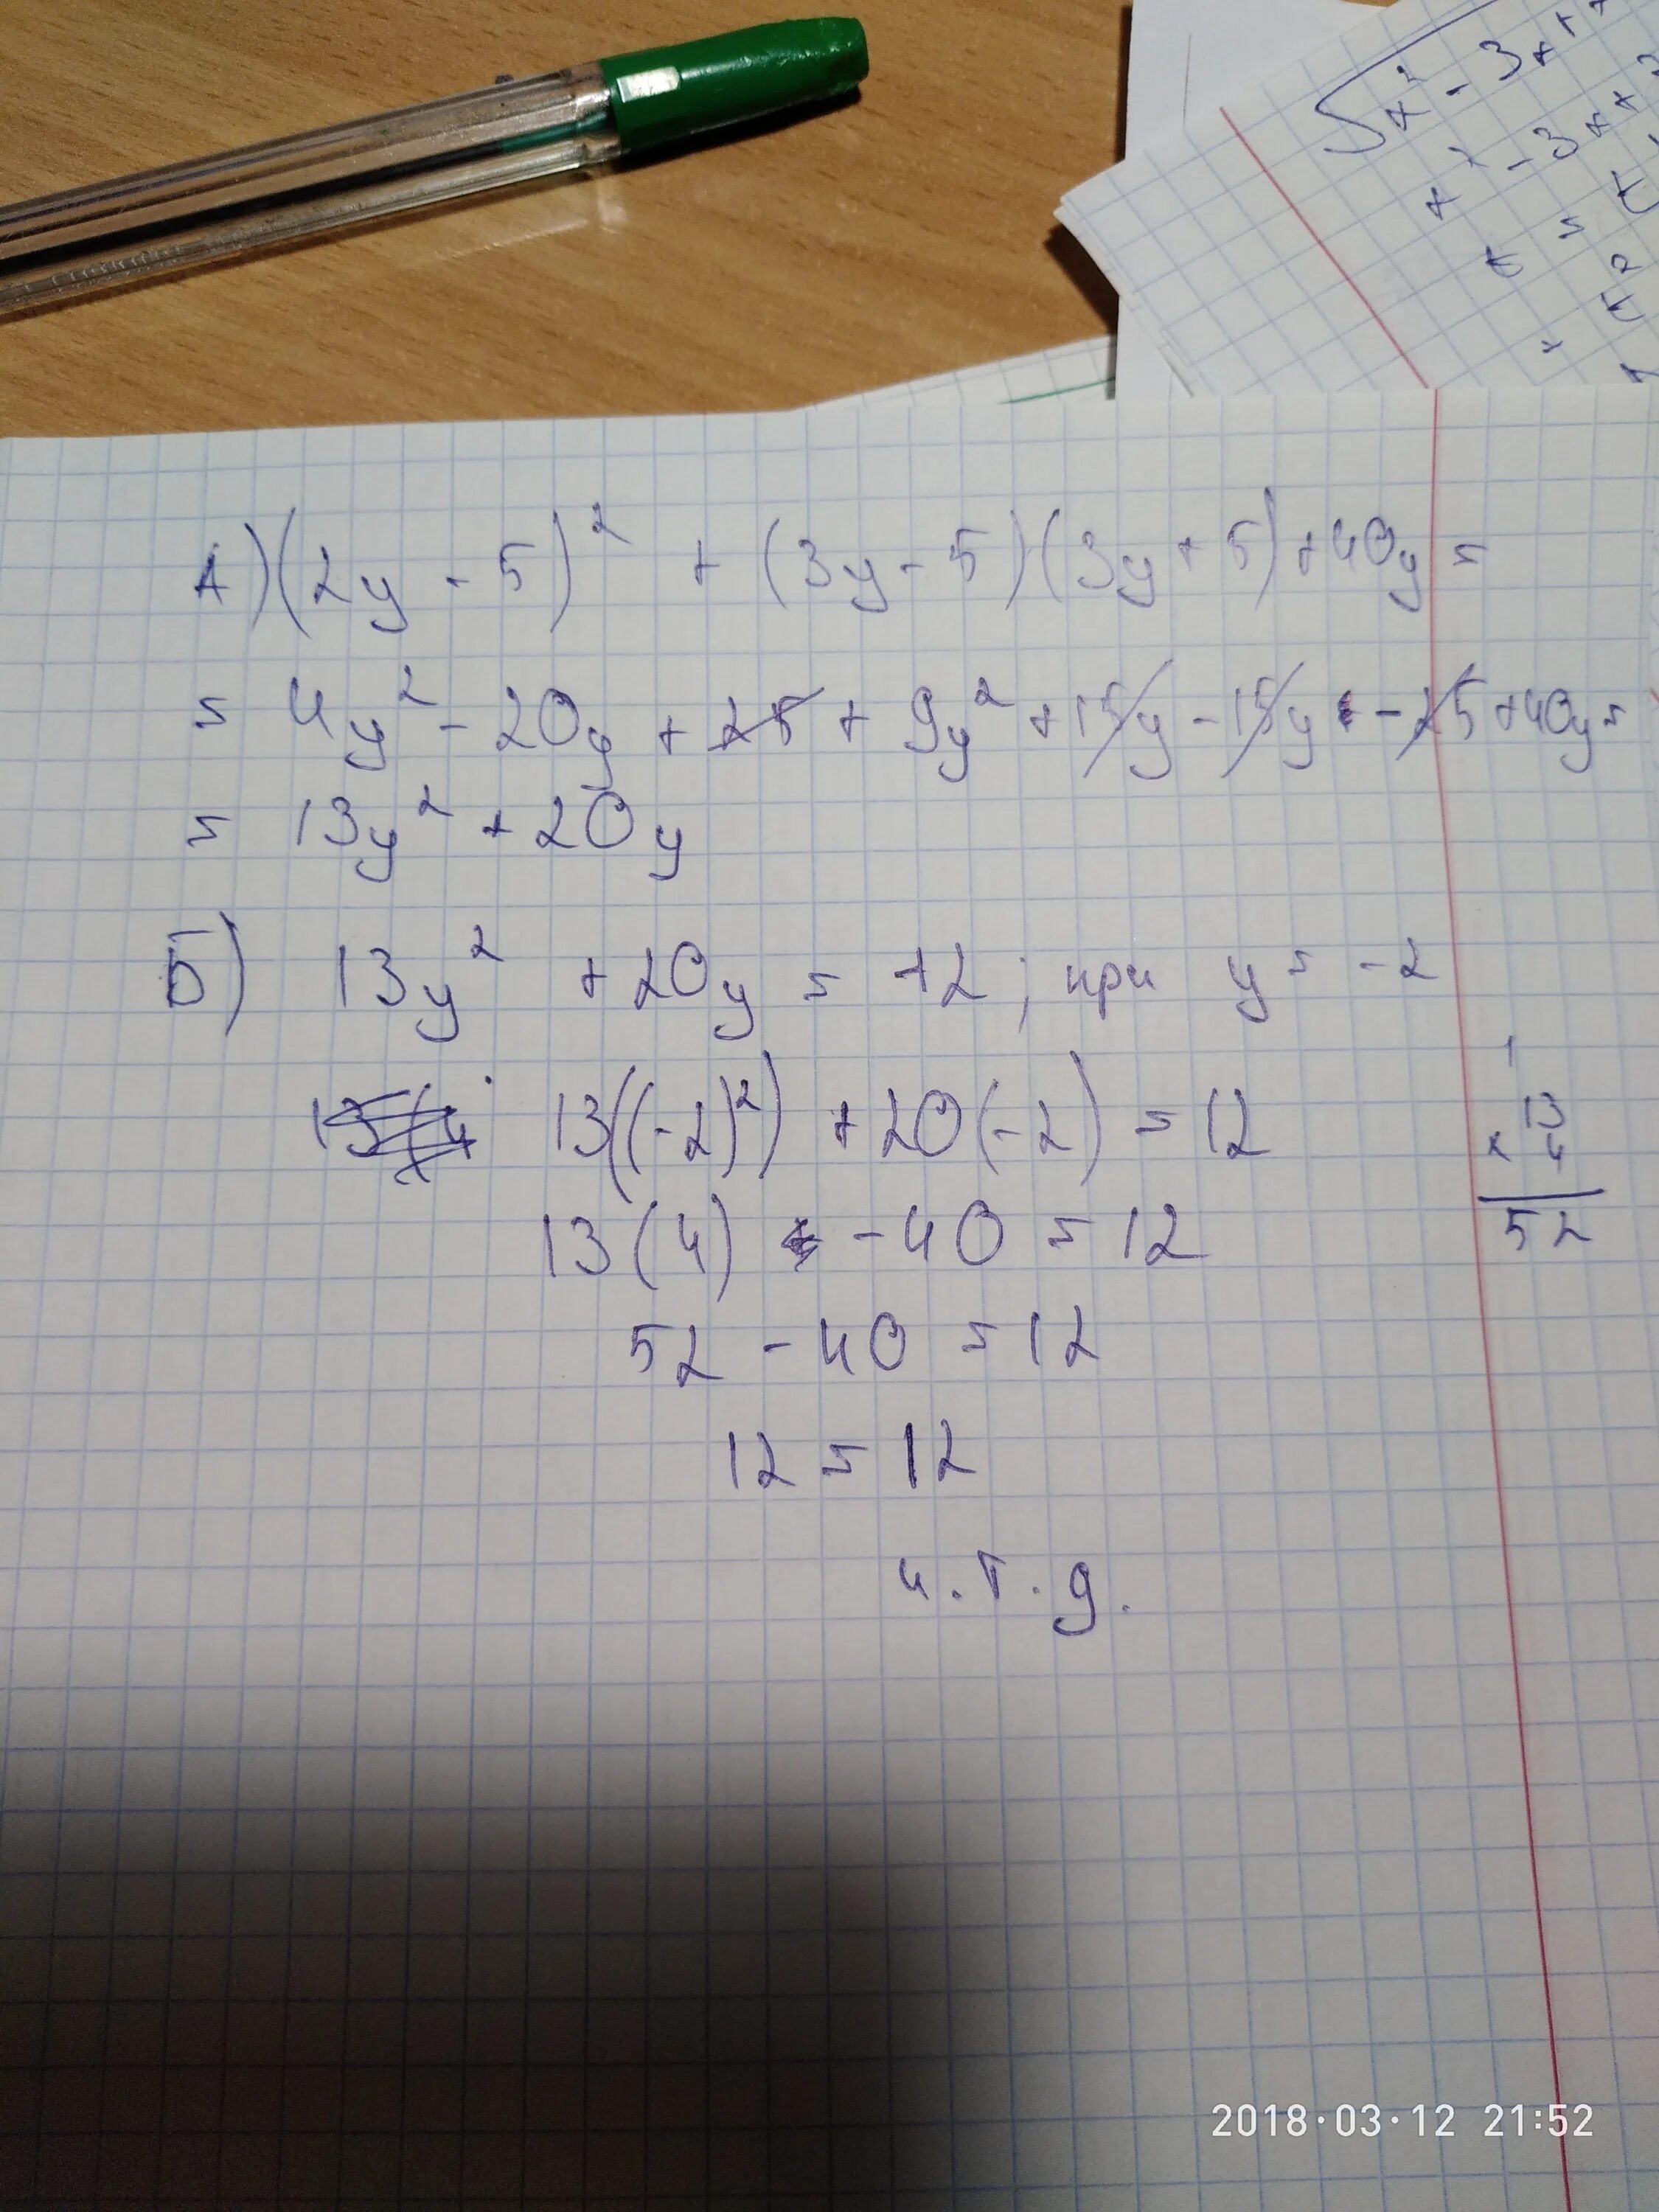 А) (2y - 5)² + (3y - 5)(3y + 5) + 40y =
= 4y² - 20y + 25 + 9y² + 15y - 15y - 25 + 40y =
= 13y² + 20y
Б) 13y² + 20y = +2; при y = -2
13((-2)²) + 20(-2) = 12
13(4) - 40 = 12
52 - 40 = 12
12 = 12
ч.т.д.
1
× 13
4
52
2018·03·12 21:52